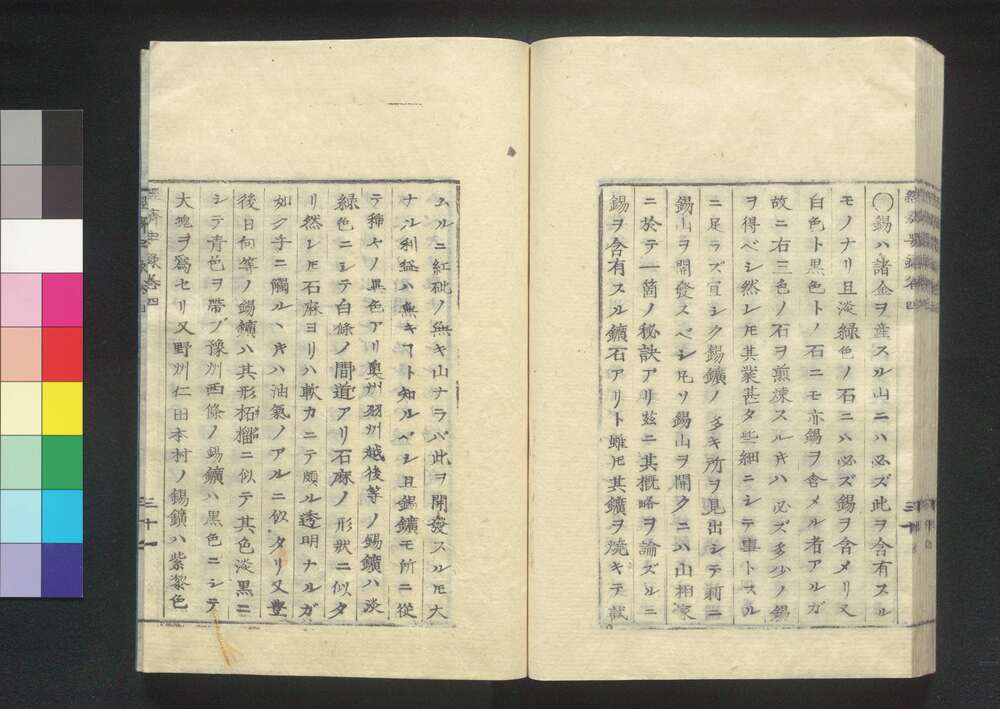 〇錫ハ諸金ヲ産スル山ニハ必ズ此ヲ含有スル
モノナリ且淡緑色ノ石ニハ必ズ錫ヲ含メリ又
白色ト黒色トノ石ニモ亦錫ヲ含メル者アルガ
故ニ右三色ノ石ヲ煎煉スルキハ必ズ多少ノ錫
ヲ得ベシ然レ𪜈其業甚タ些細ニシテ事トスル
ニ足ラズ宜シク錫鑛ノ多キ所ヲ見出シテ新ニ
錫山ヲ開發スベシ凡ソ錫山ヲ開クニハ山相家
ニ於テ一箇ノ秘訣アリ玆ニ其概略ヲ論ズルニ
錫ヲ含有スル鑛石アリト雖𪜈其鑛ヲ焼キテ試
ムルニ紅砒ノ無キ山ナラバ此ヲ開發スルモ大
ナル利益ハ無キヿト知ルベシ且錫鑛モ所ニ從
テ種々ノ異色アリ奥州羽州越後等ノ錫鑛ハ淡
緑色ニシテ白條ノ間道アリ石麻ノ形狀ニ似タ
リ然レ𪜈石麻ヨリハ軟カニテ頗ル透明ナルガ
如ク手ニ觸ルヽキハ油氣ノアルニ似タリ又豊
後日向等ノ錫鑛ハ其形柘榴ニ似テ其色淡黒ニ
シテ青色ヲ帶ブ豫州西條ノ錫鑛ハ黒色ニシテ
大塊ヲ爲セリ又野州仁田本村ノ錫鑛ハ紫黎色
三十一